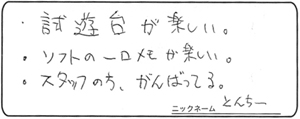 ・試遊台が楽しい。
・ソフトの一口メモが楽しい。
・スタッフのち、がんばってる。
ニックネーム とんちー